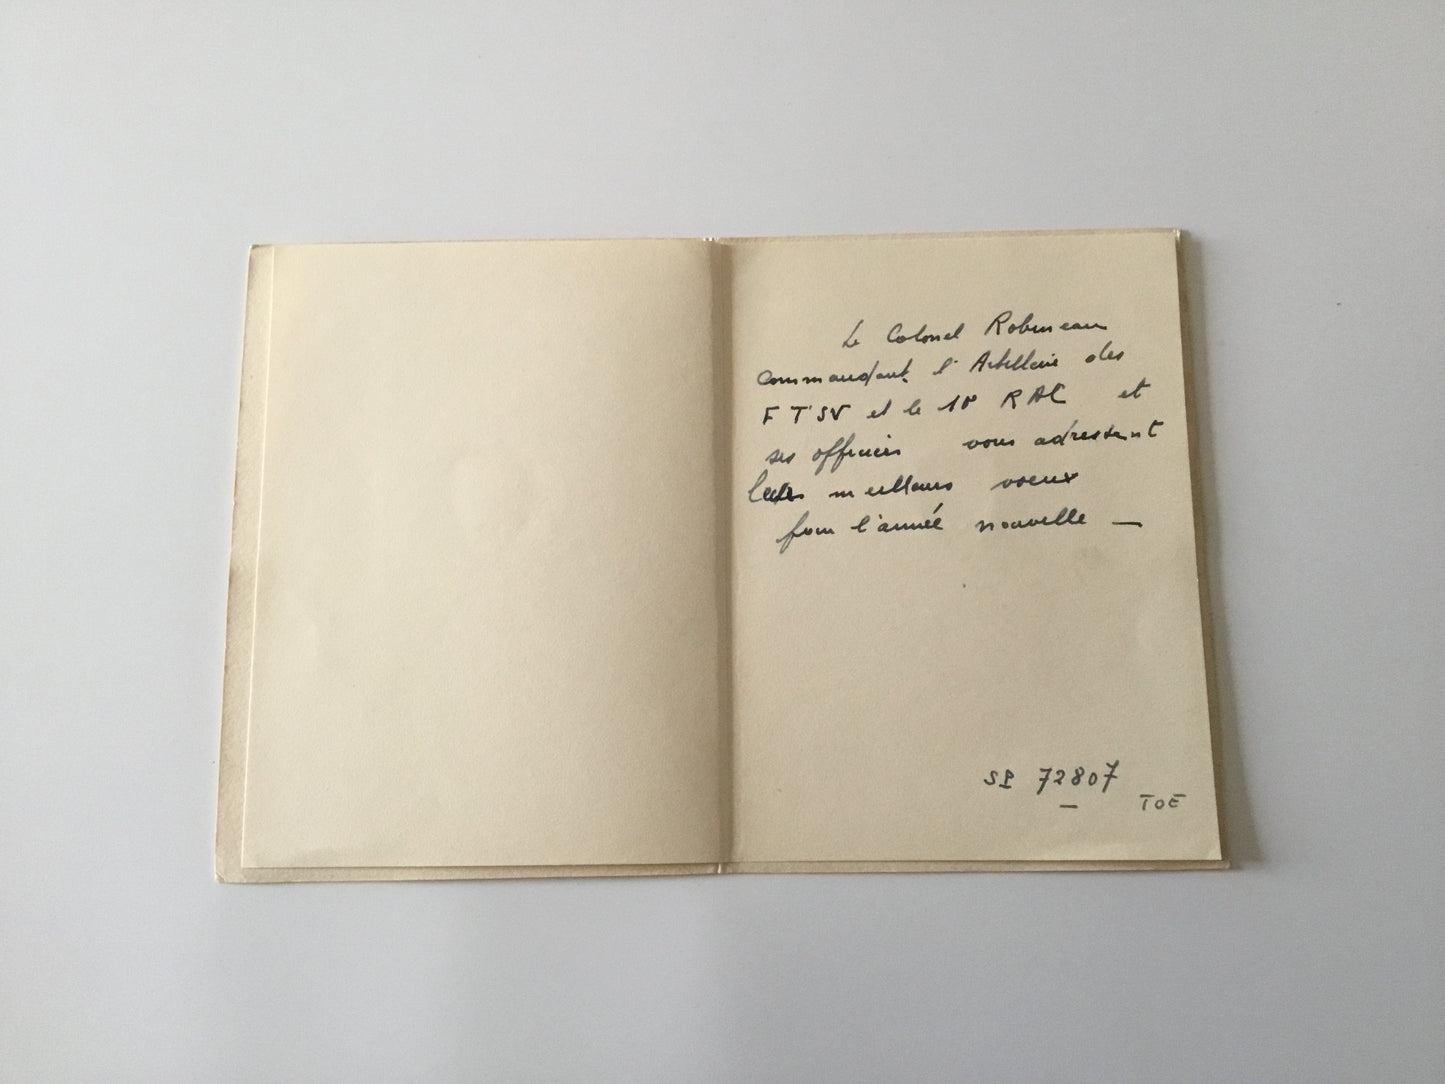 Le Colonel Robineau
Commandant l'Artillerie des
FTSV et le 10° RAC et
ses officiers vous adressent
leurs meilleurs voeux
pour l'année nouvelle —
SP 72807
TOE